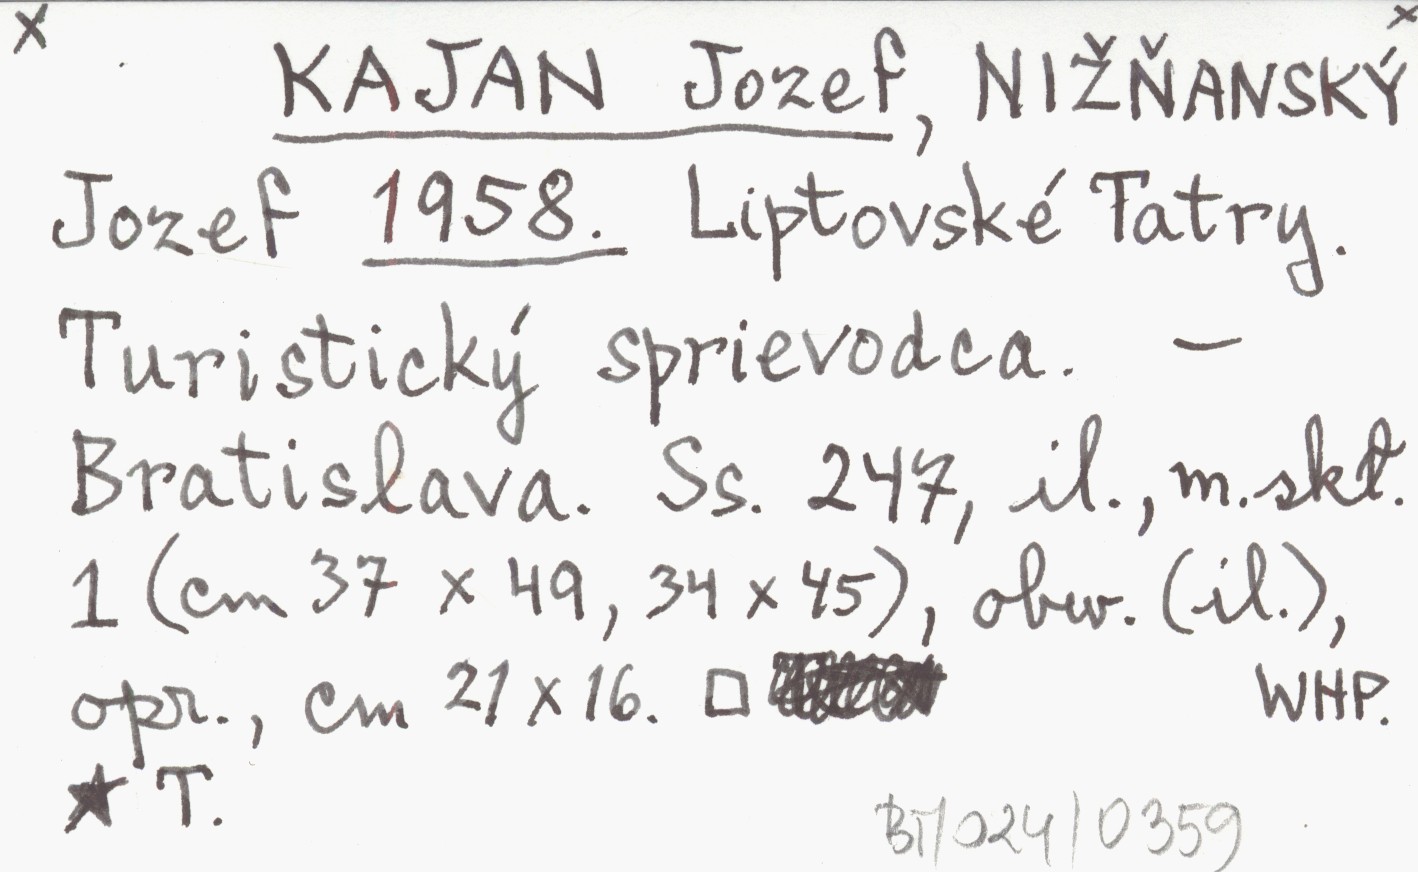 x x
KAJAN Jozef, NIŽŇANSKÝ
Jozef 1958. Liptovské Tatry.
Turistický sprievodca. –
Bratislava. Ss. 247, il., m.skł.
1 (cm 37 x 49, 34 x 45), obw. (il.),
opr., cm 21 x 16. □ WHP.
★ T.
BT/024/0359